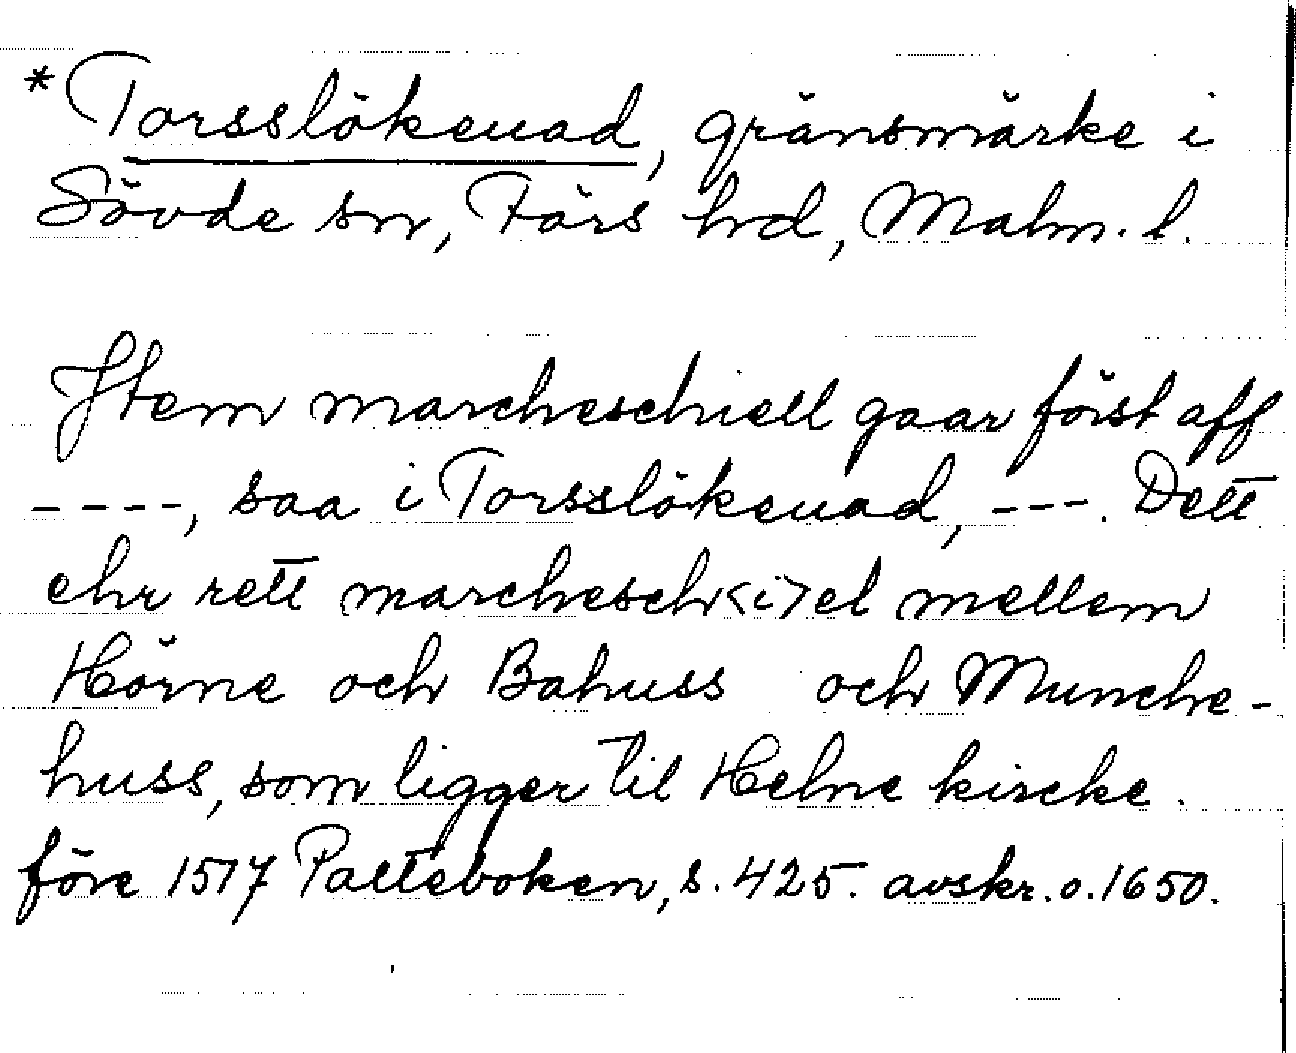 *Torsslökeuad, gränsmärke i
Sövde sn, Färs hd, Malm. l.
Item marcheschiell gaar först aff
----, saa i Torsslökeuad, ---. Dett
ehr rett marchesch<i>el mellem
Hörne och Bahuss och Munche-
huss, som ligger til Helne kircke.
före 1517 Palteboken, s. 425. avskr. o. 1650.